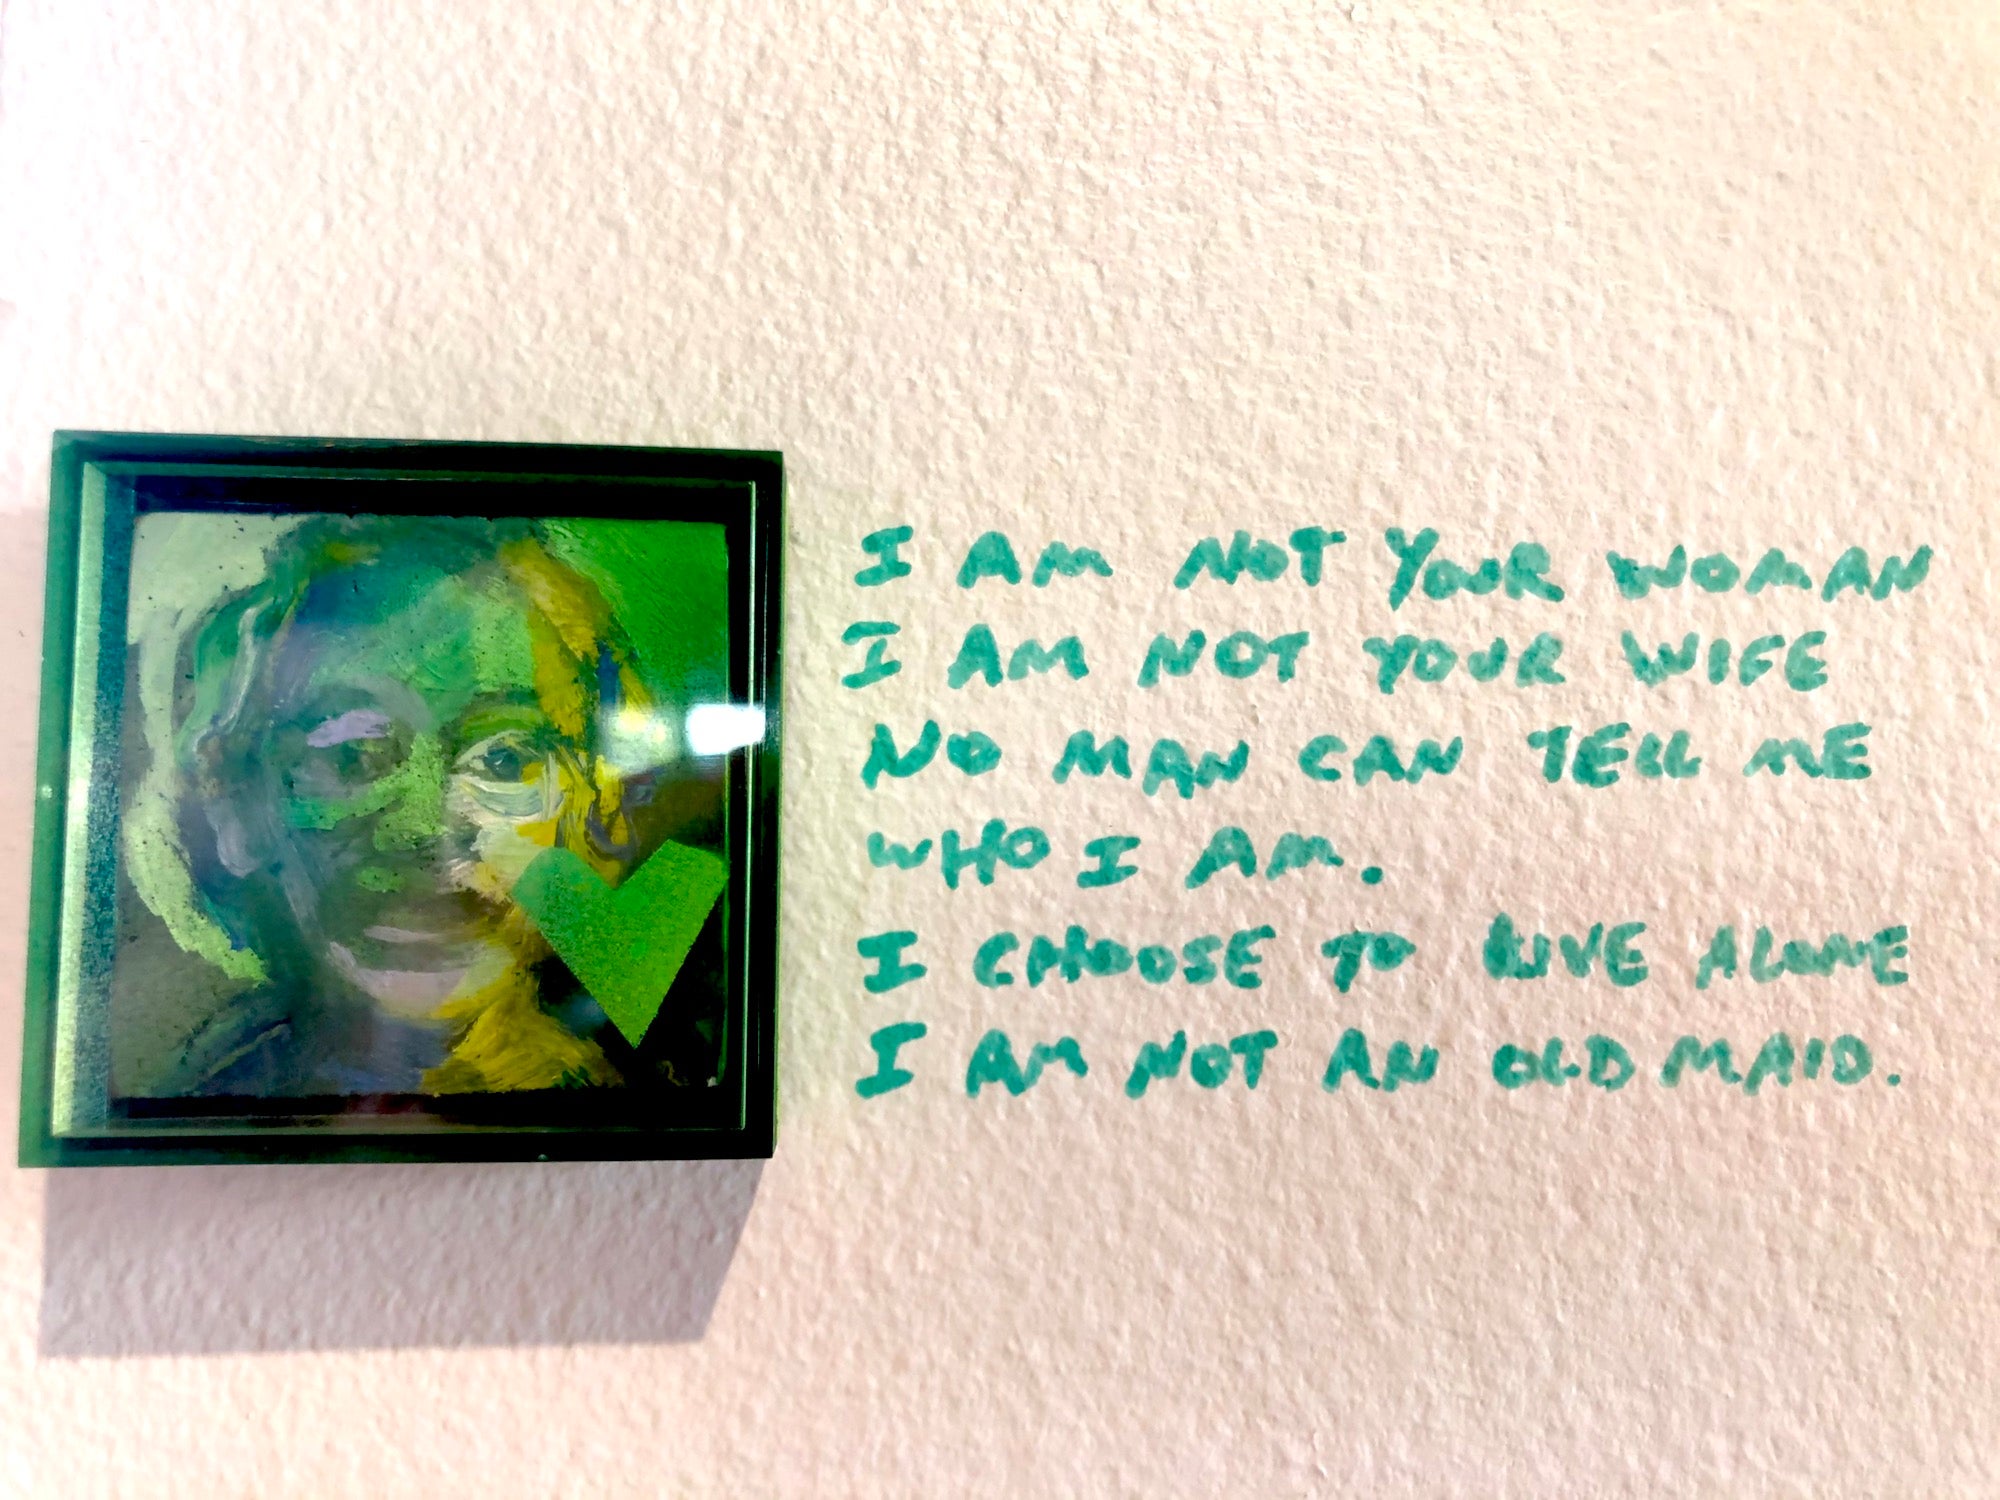 I AM NOT YOUR WOMAN
I AM NOT YOUR WIFE
NO MAN CAN TELL ME
WHO I AM.
I CHOOSE TO LIVE ALONE
I AM NOT AN OLD MAID.